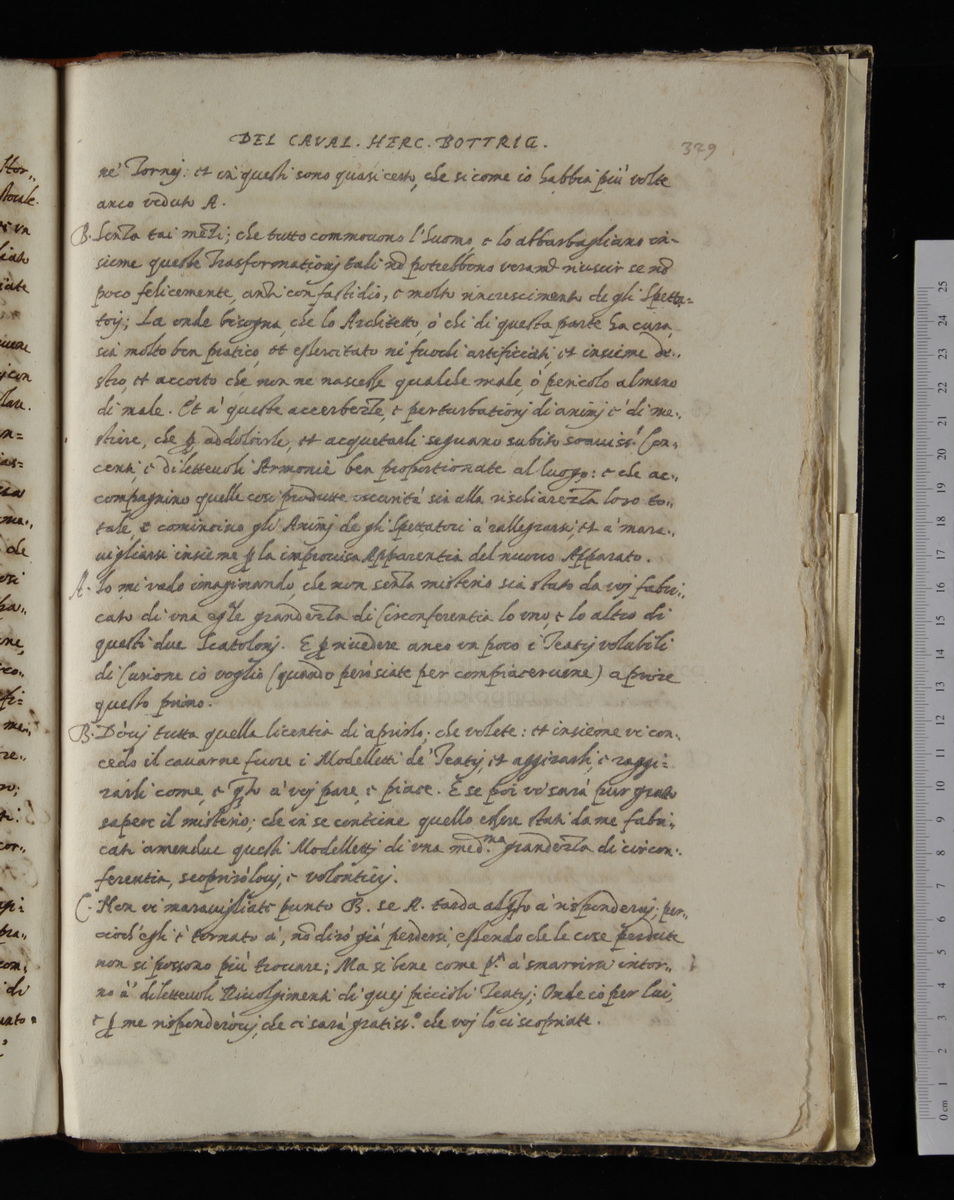 DEL CAVAL. HERC. BOTTRIG.
379
ne' Tornej: et in questi sono quasi certo, che si come io habbia più volte
anco veduto A.
B. Senza tai mezi; che tutto commovono l'huomo, e lo abbarbagliano in-
sieme queste Trasformationj tali nō potrebbono veramte riuscir se nō
poco felicemente, anzi con fastidio, e molto rincrescimento de gli Spetta=
torj; La onde bisogna, che lo Architetto, ò chi di questa parte ha cura,
sia molto ben pratico, et essercitato ne' fuochi artificiali et insieme de..
stro, et accorto che non ne nascesse qualche male, ò pericolo almeno
di male. Et à queste accerbezze, e perturbationj di animj è di me..
stiere, che p addolcirle, et acquetarli seguano subito soaviss.i Con..
centi, e dilettevoli Armonie ben proportionate al luogo: e che ac..
compagnino quelle così produtte oscurità sia alla rischiarezza loro to..
tale, e comincino gli Animj de gli Spettatori à rallegrarsi, et à mara..
vigliarsi insieme p la improvisa Apparentia del nuovo Apparato.
A. Io mi vado imaginando, che non senza misterio sia stato da voj fabri..
cato di una egle grandezza di Circonferentia lo uno, e lo altro di
questi due Scatolonj. E p rivedere anco un poco i Teatrj volubili
di Curione io voglio (quando però siate per compiacervene) aprire
questo primo.
B. Dòvij tutta quella licentia di aprirlo; che volete: et insieme vi con..
cedo il cavarne fuore i Modelletti de' Teatrj, et aggirarli, e raggi=
rarli come, e qto à voj pare, e piace. E se poi vi sarà pur grato
sapere il misterio; che in se contiene quello essere stati da me fabri..
cati amendue questi Modelletti di una med.ma grandezza di circon..
ferentia, scoprirólovj, e volontierj.
C. Non vi maravigliate punto B. se A. tarda alqto à rispondervj; per..
cioch'egli è tornato à, nō dirò già perdersi, essendo che le cose perdute
non si possono più trovare; Ma si bene come p.a à smarrirsi intor..
no à' dilettevoli Rivolgimenti di quej piccioli Teatrj; Onde io per lui,
e p me risponderòvj, che ci sarà gratiss.o che voj lo ci scopriate.